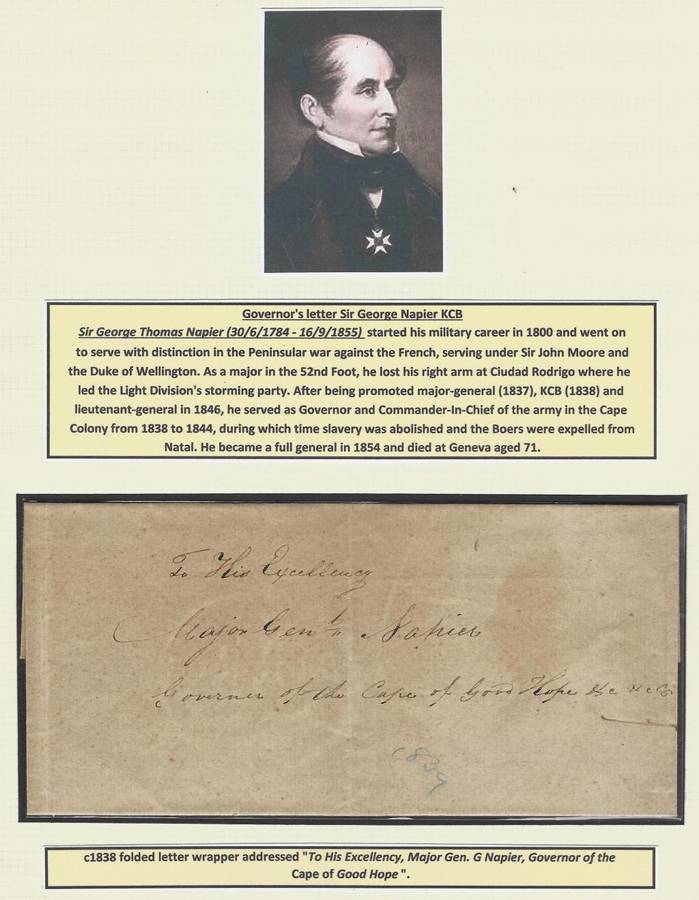 Governor's letter Sir George Napier KCB
Sir George Thomas Napier (30/6/1784 - 16/9/1855) started his military career in 1800 and went on
to serve with distinction in the Peninsular war against the French, serving under Sir John Moore and
the Duke of Wellington. As a major in the 52nd Foot, he lost his right arm at Ciudad Rodrigo where he
led the Light Division's storming party. After being promoted major-general (1837), KCB (1838) and
lieutenant-general in 1846, he served as Governor and Commander-In-Chief of the army in the Cape
Colony from 1838 to 1844, during which time slavery was abolished and the Boers were expelled from
Natal. He became a full general in 1854 and died at Geneva aged 71.
To His Excellency
Major Gen Napier
Governer of the Cape of Good Hope &c &c &c
c839
c1838 folded letter wrapper addressed "To His Excellency, Major Gen. G Napier, Governor of the
Cape of Good Hope".